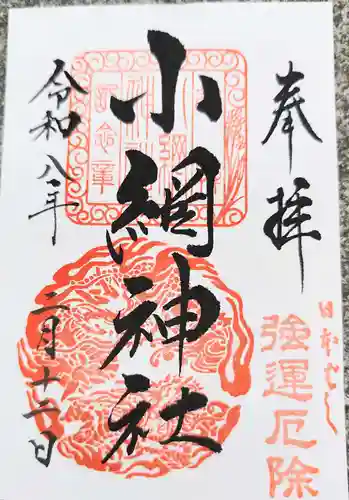 奉拝
日本ばし
強運厄除
小網神社
令和八年
二月十二日